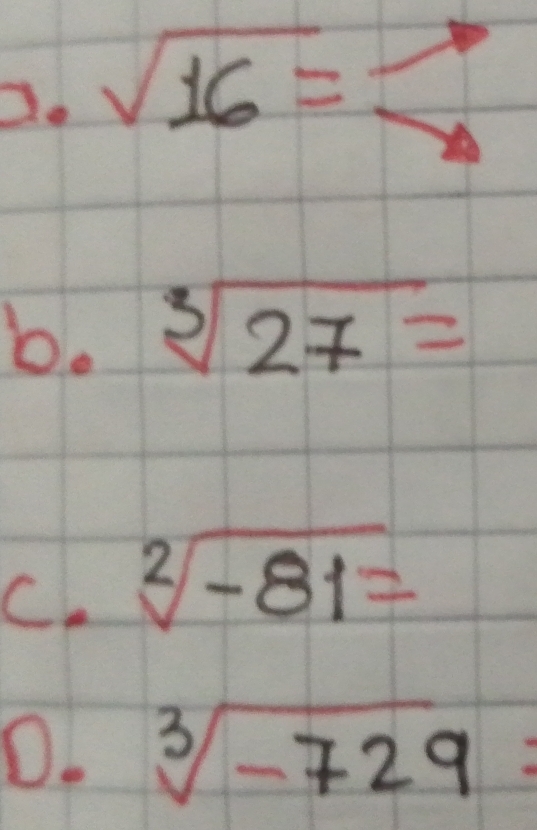 a. √16 =
b. ∛27 =
c. ²√-81 =
D. ∛-729 =